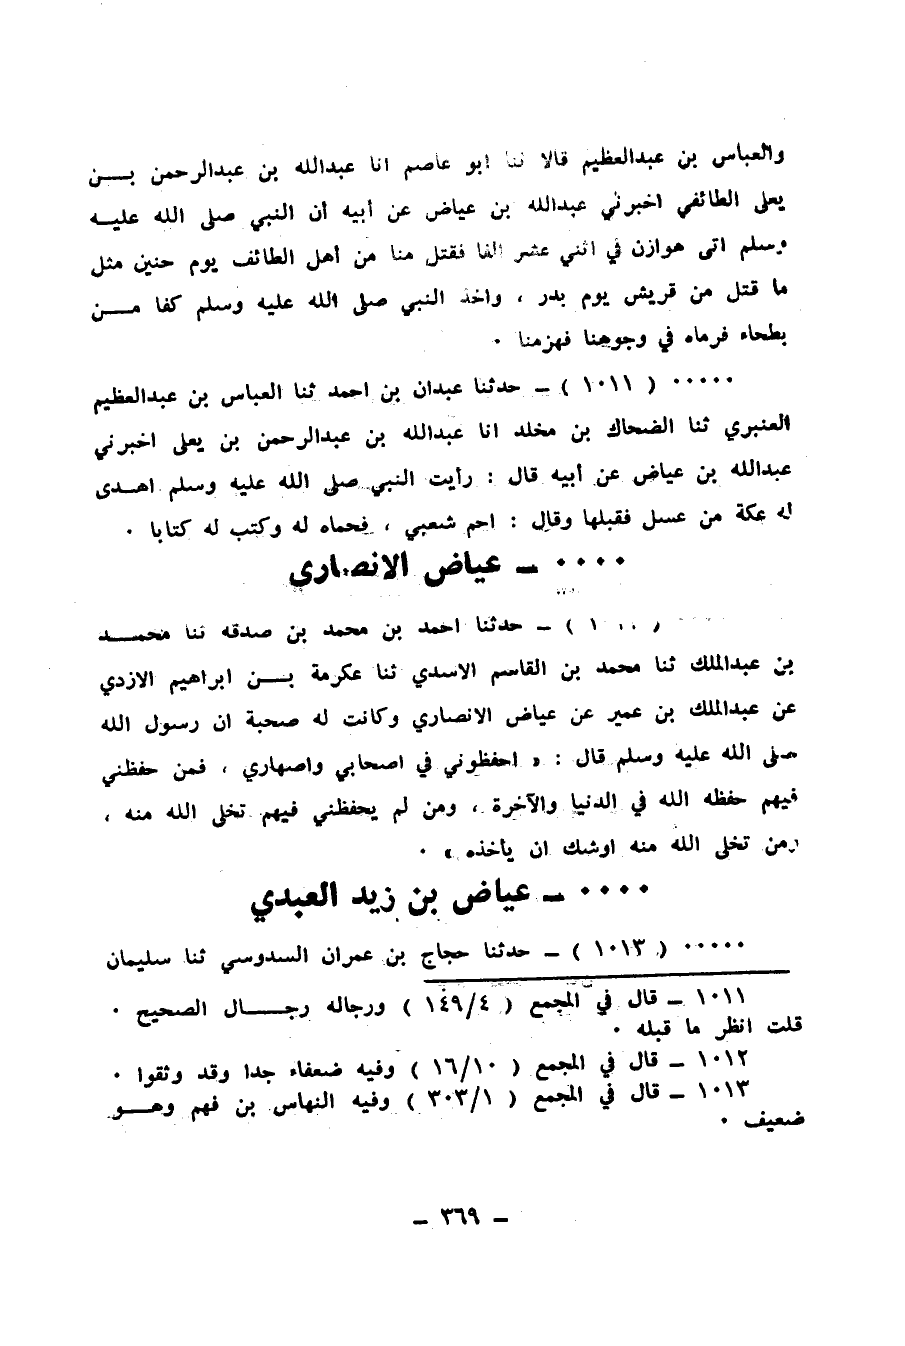 والعباس بن عبدالعظيم قالا ثنا ابو عاصم انا عبدالله بن عبدالرحمن بــن
يعلى الطائفي اخبرني عبدالله بن عياض عن أبيه أن النبي صلى الله عليــه
وسلم اتى هوازن في اثني عشر الفا فقتل منا من أهل الطائف يوم حنين مثل
ما قتل من قريش يوم بدر ، واخذ النبي صلى الله عليه وسلم كفا مــن
بطحاء فرماه في وجوهنا فهزمنا ٠
٠٠٠٠٠ ( ١٠١١ ) ــ حدثنا عبدان بن احمد ثنا العباس بن عبدالعظيم
العنبري ثنا الضحاك بن مخلد انا عبدالله بن عبدالرحمن بن يعلى اخبرني
عبدالله بن عياض عن أبيه قال : رأيت النبي صلى الله عليه وسلم اهـدى
له عكة من عسل فقبلها وقال : احم شعبي ، فحماه له وكتب له كتابا ٠
٠٠٠٠ ــ عياض الانصاري
ــ حدثنا احمد بن محمد بن صدقه ثنا محمــد
بن عبدالملك ثنا محمد بن القاسم الاسدي ثنا عكرمة بــن ابراهيم الازدي
عن عبدالملك بن عمير عن عياض الانصاري وكانت له صحبة ان رسول الله
صلى الله عليه وسلم قال : « احفظوني في اصحابي واصهاري ، فمن حفظني
فيهم حفظه الله في الدنيا والآخرة ، ومن لم يحفظني فيهم تخلى الله منه ،
ومن تخلى الله منه اوشك ان يأخذه » ٠
٠٠٠٠ ــ عياض بن زيد العبدي
٠٠٠٠٠ ( ١٠١٣ ) ــ حدثنا حجاج بن عمران السدوسي ثنا سليمان
١٠١١ ــ قال في المجمع ( ١٤٩/٤ ) ورجاله رجــال الصحيح ٠
قلت انظر ما قبله ٠
١٠١٢ ــ قال في المجمع ( ١٦/١٠ ) وفيه ضعفاء جدا وقد وثقوا ٠
١٠١٣ ــ قال في المجمع ( ٣٠٣/١ ) وفيه النهاس بن فهم وهــو
ضعيف ٠
ــ ٣٦٩ ــ